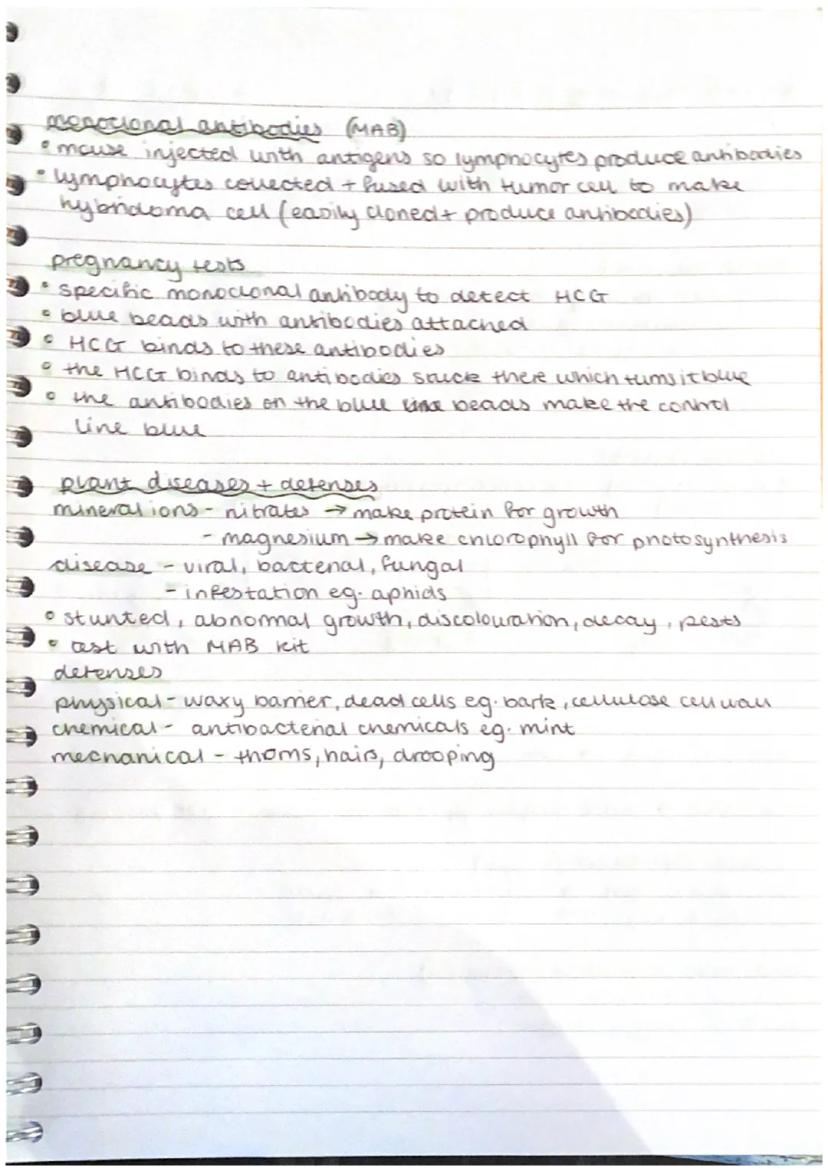 monoclonal antibodies (MAB)
• mouse injected with antigens so lymphocytes produce antibodies
• lymphocytes collected + fused with tumor cell to make
hybridoma cell (easily cloned + produce antibodies)
pregnancy tests
• specific monoclonal antibody to detect HCG
• blue beads with antibodies attached
• HCG binds to these antibodies
• the HCG binds to antibodies stuck there which turns it blue
• the antibodies on the blue line beads make the control
line blue
plant diseases + defenses
mineral ions - nitrates → make protein for growth
- magnesium → make chlorophyll for photosynthesis
disease - viral, bacterial, fungal
- infestation eg. aphids
• stunted, abnormal growth, discolouration, decay, pests
• test with MAB kit
defenses
physical - waxy barrier, dead cells eg. bark, cellulose cell wall
chemical - antibacterial chemicals eg. mint
mechanical - thorns, hairs, drooping